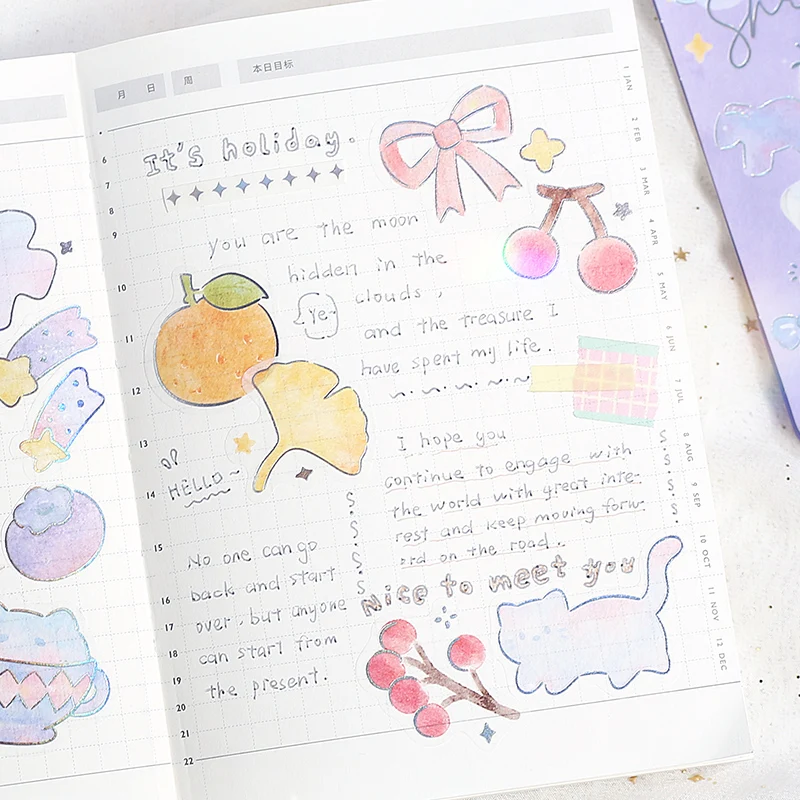 月 日 周 本日目标
It's holiday.
you are the moon
hidden in the
clouds,
{Ye~}
and the treasure I
have spent my life.
I hope you
continue to engage with
the world with great inte-
rest and keep moving forw-
ard on the road..
HELLO~
No one can go
back and start
over, but anyone
can start from
the present.
Nice to meet you
6
7
8
9
10
11
12
13
14
15
16
17
18
19
20
21
22
1 JAN
2 FEB
3 MAR
4 APR
5 MAY
6 JUN
7 JUL
8 AUG
9 SEP
10 OCT
11 NOV
12 DEC